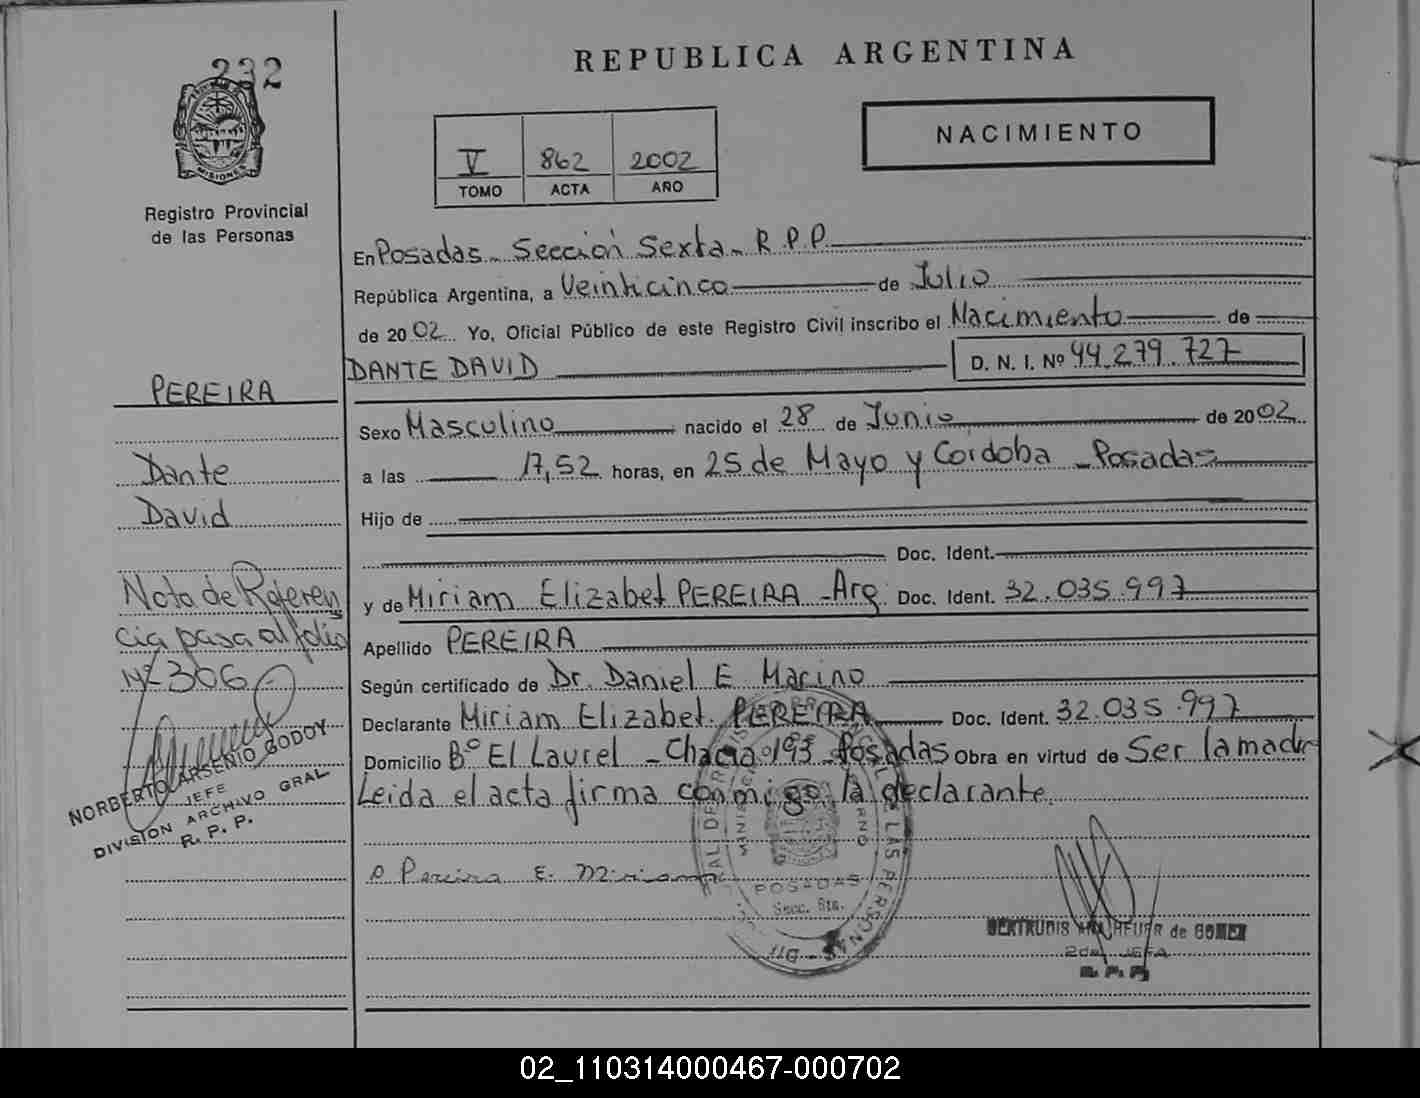 232
REPUBLICA ARGENTINA
NACIMIENTO
V 862 2002
TOMO ACTA AÑO
MISIONES
Registro Provincial
de las Personas
En Posadas - Sección Sexta - R.P.P.
República Argentina, a Veinticinco de Julio
de 2002 Yo, Oficial Público de este Registro Civil inscribo el Nacimiento de
DANTE DAVID D. N. I. Nº 44.279.727
PEREIRA
Sexo Masculino nacido el 28 de Junio de 2002
a las 17,52 horas, en 25 de Mayo y Córdoba - Posadas
Dante
David
Hijo de
Doc. Ident.
y de Miriam Elizabet PEREIRA - Arg. Doc. Ident. 32.035.997
Apellido PEREIRA
Según certificado de Dr. Daniel E Marino
Declarante Miriam Elizabet PEREIRA Doc. Ident. 32.035.997
Domicilio Bº El Laurel - Chacra 193 - Posadas Obra en virtud de Ser la madre
Leida el acta firma conmigo la declarante.
Nota de Referen
cia pasa al folio
Nº 306
NORBERTO ARSENIO GODOY
JEFE
DIVISION ARCHIVO GRAL
R. P. P.
Pereira E. Miriam
POSADAS
Secc. 6ta.
LAS PERSONAS
GERTRUDIS de GOMEZ
2da. JEFA
R. P. P.
02_110314000467-000702